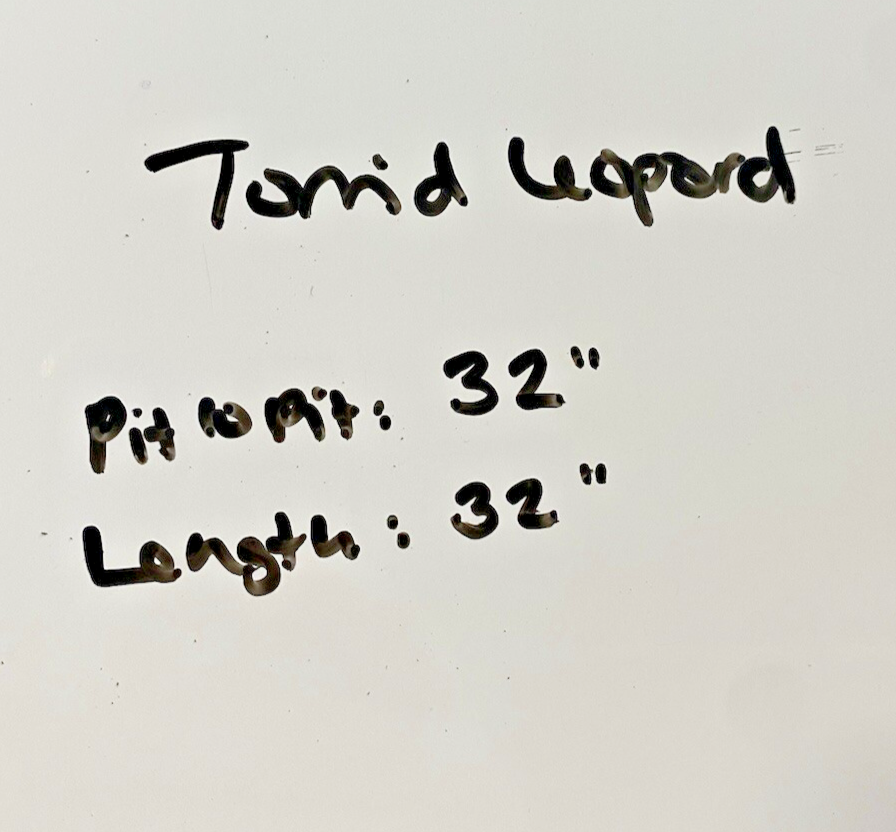 Torrid Leopard
Pit to Pit: 32"
Length: 32"